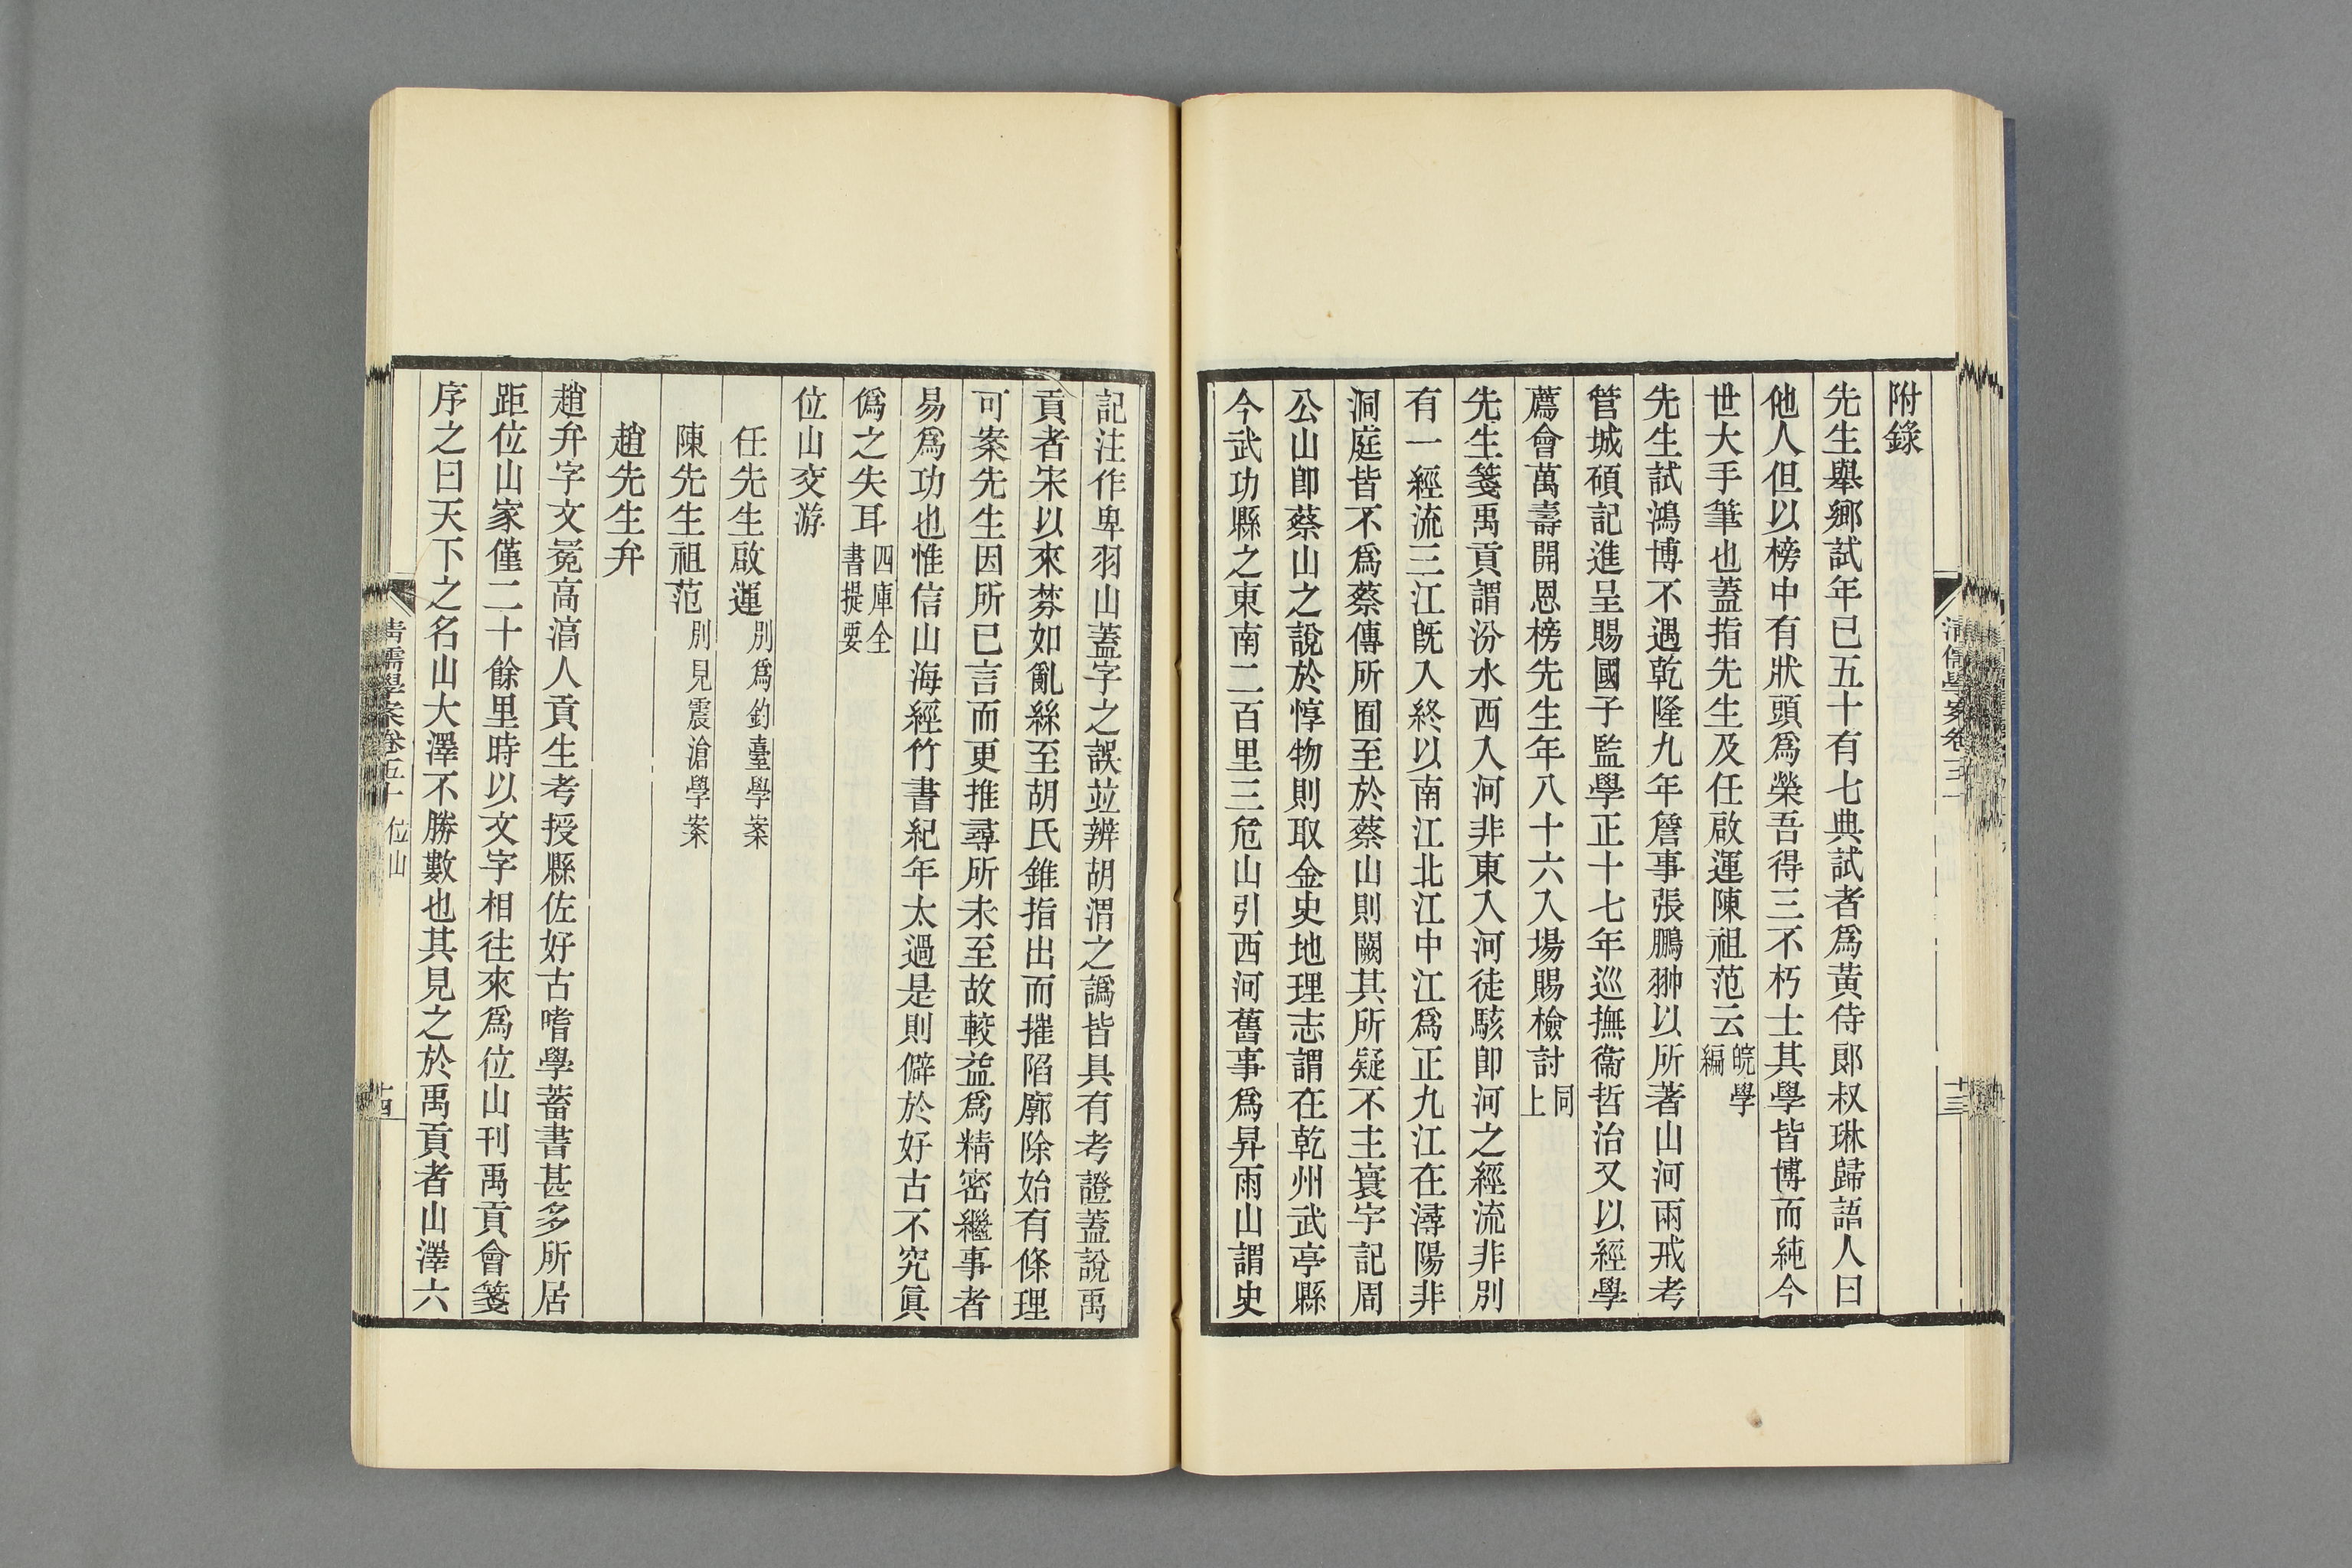 附錄
先生舉鄉試年已五十有七典試者爲黃侍郎叔琳歸語人曰
他人但以榜中有狀頭爲榮吾得三不朽士其學皆博而純今
世大手筆也蓋指先生及任啟運陳祖范云皖學編
先生試鴻博不遇乾隆九年詹事張鵬翀以所著山河兩戒考
管城碩記進呈賜國子監學正十七年巡撫衞哲治又以經學
薦會萬壽開恩榜先生年八十六入場賜檢討同上
先生箋禹貢謂汾水西入河非東入河徒駭卽河之經流非別
有一經流三江旣入終以南江北江中江爲正九江在潯陽非
洞庭皆不爲蔡傳所囿至於蔡山則闕其所疑不主寰宇記周
公山卽蔡山之說於惇物則取金史地理志謂在乾州武亭縣
今武功縣之東南二百里三危山引西河舊事爲昇雨山謂史
清儒學案卷五十
十三
記注作卑羽山蓋字之誤並辨胡渭之譌皆具有考證蓋說禹
貢者宋以來棼如亂絲至胡氏錐指出而摧陷廓除始有條理
可案先生因所已言而更推尋所未至故較益爲精密繼事者
易爲功也惟信山海經竹書紀年太過是則僻於好古不究眞
僞之失耳四庫全書提要
位山交游
任先生啟運別爲釣臺學案
陳先生祖范別見震滄學案
趙先生弁
趙弁字文冕高淯人貢生考授縣佐好古嗜學蓄書甚多所居
距位山家僅二十餘里時以文字相往來爲位山刊禹貢會箋
序之曰天下之名山大澤不勝數也其見之於禹貢者山澤六
清儒學案卷五十 位山
十四